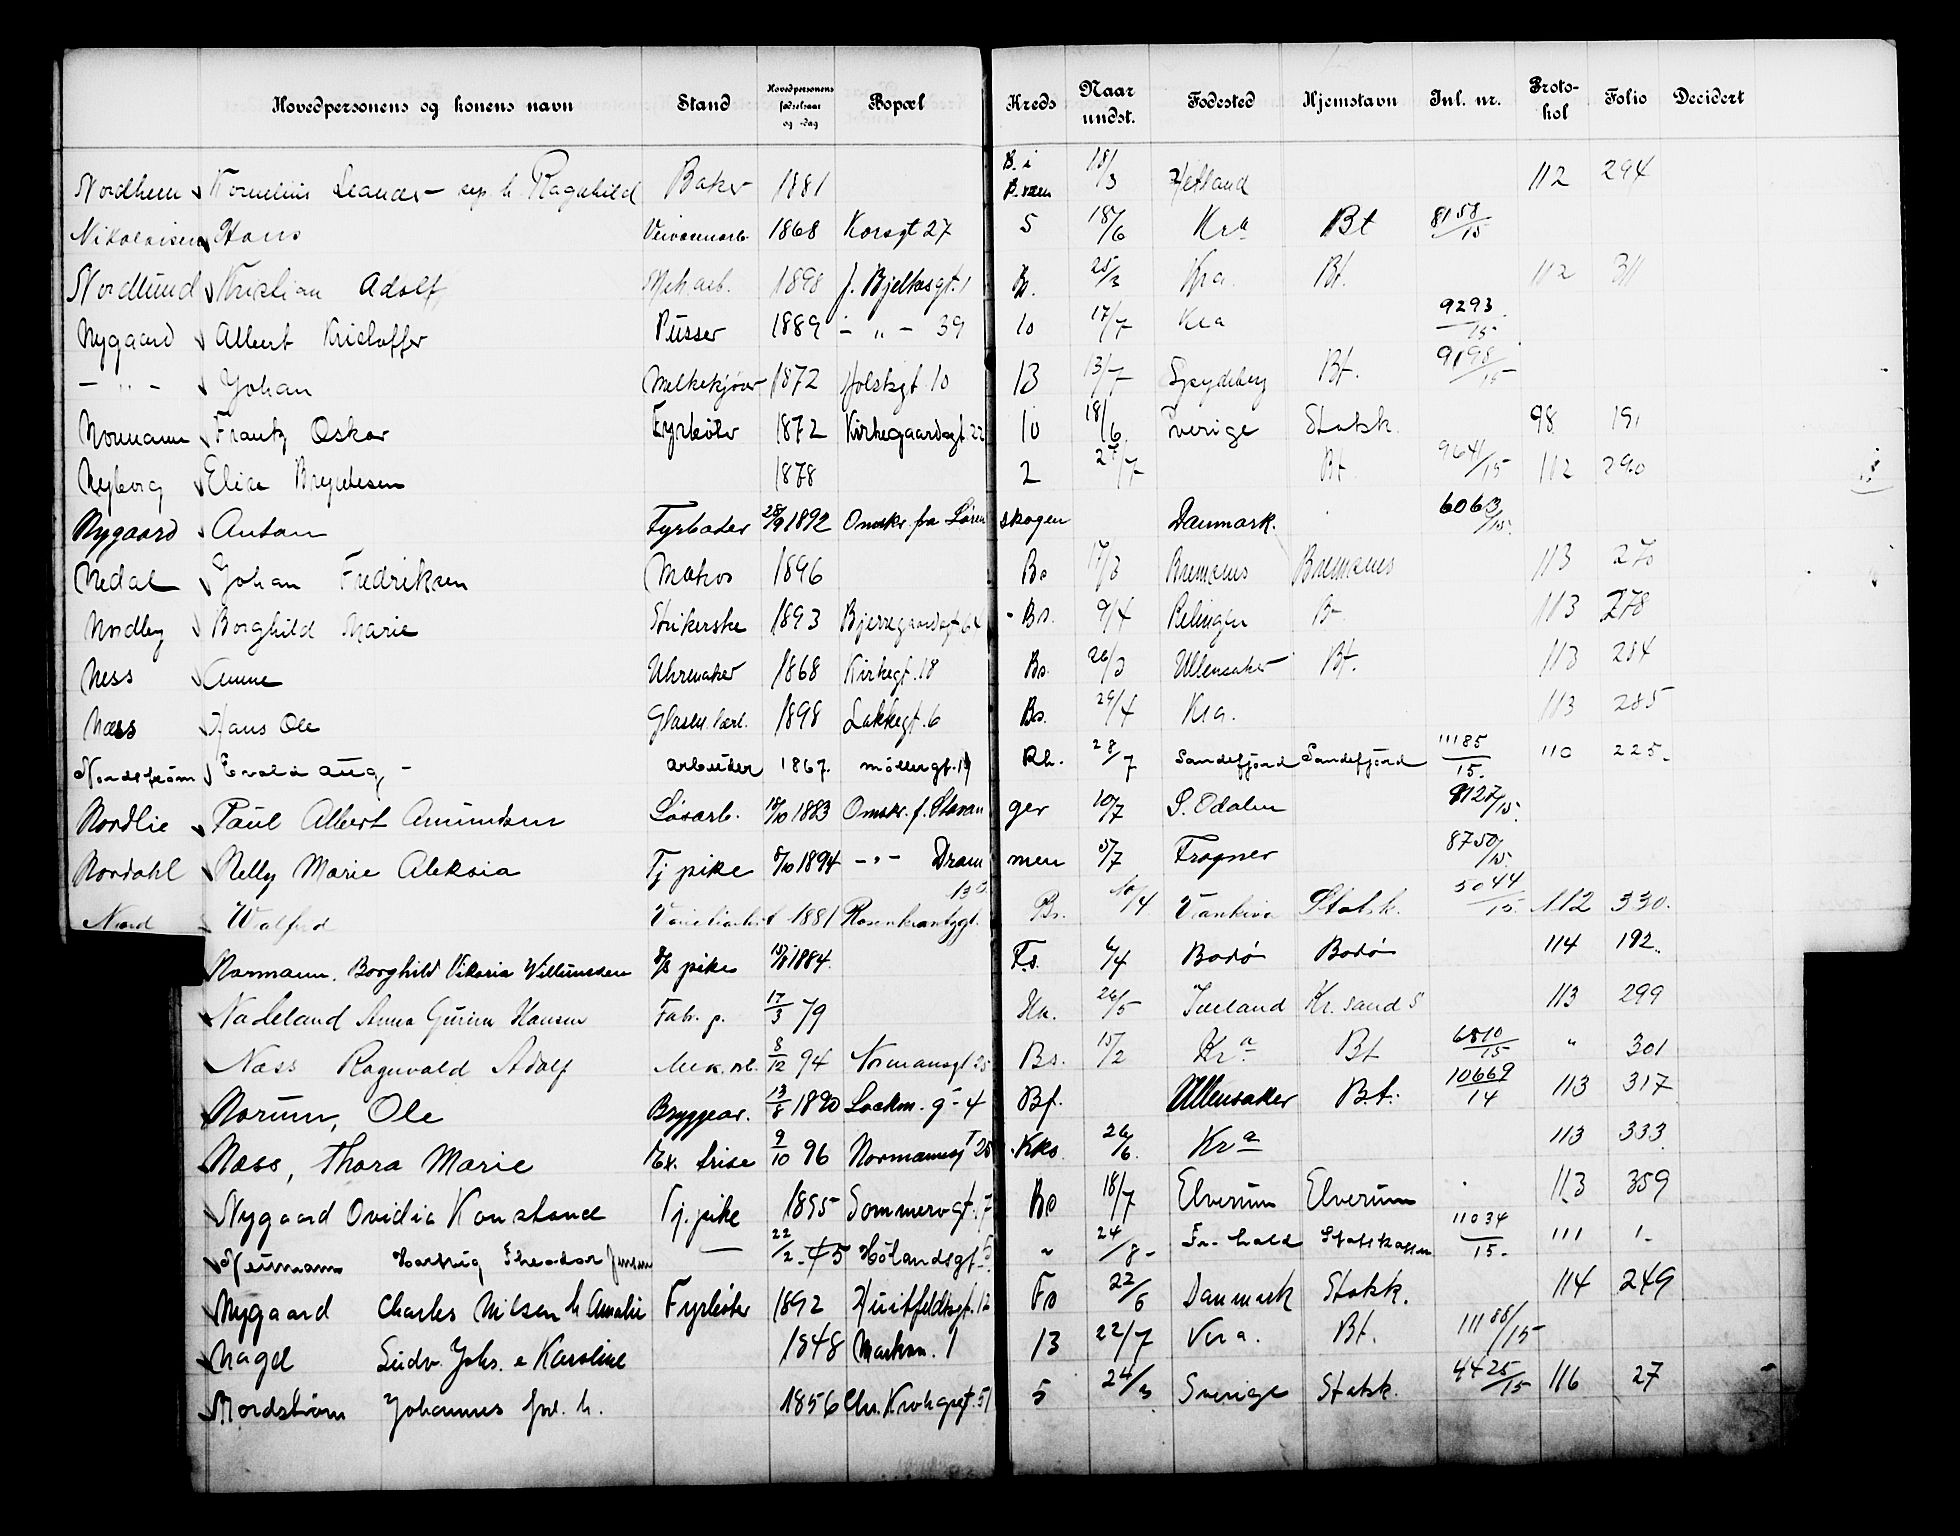 Hovedpersonens og konens navn Stand Hovedpersonens fødselsaar og -dag Bopæl Kreds Naar undst. Fødested Hjemstavn Inl. nr. Protokol Folio Decidert
Nordheim Kornelius Leander - sep. h. Ragnhild Baker 1881 B. i B.væn 18/3 Hetland 112 294
Nikolaisen Hans Veivesenarb. 1868 Korsgt 27 5 18/6 Kr.a Bt 8158/15
Nordlund Kristian Adolf Mek.arb. 1898 J. Bjelkesgt. 1 B. 25/3 Kra. Bt. 112 311
Nygaard Albert Kristoffer Pusser 1889 - " - 39 10 17/7 Kra 9293/15
- " - Johan Melkekjører 1872 Holstsgt. 10 13 13/7 Spydeberg Bt. 9198/15
Normann Frantz Oskar Fyrbøter 1872 Kirkegaardsgt. 22 10 18/6 Sverige Statsk. 98 191
Nyborg Elise Bryntesen 1878 2 2/7 Bt 9641/15 112 290
Nygaard Anton Fyrbøder 28/9 1892 Omskr. fra Lørenskogen Danmark. 6063/15
Nedal Johan Fredriksen Matros 1896 Bs 17/3 Bremanes Bremanes 113 270
Nordby Borghild Marie Strikerske 1893 Bjerregaardsgt 62 Bs. 9/4 Rælingen B 113 278
Ness Anne Uhrmaker 1868 Kirkegt. 18 Bs. 26/3 Ullensaker Bt. 113 284
Næss Hans Ole Glasm. lærl. 1898 Lakkegt. 6 Bs. 29/4 Kra. 113 285
Nordstrøm Evald Aug. arbeider 1867. Møllergt. 19 Rh. 28/7 Sandefjord Sandefjord 11185/15. 110 225.
Nordlie Paul Albert Amundsen Løsarb. 18/10 1883 Omskr. f. Stavanger 10/7 S. Odalen 9127/15.
Nordahl Nelly Marie Aleksia Tj pike 5/10 1894 - " - Drammen 5/7 Frogner 8750/15
Nord Walfrid Varietéartist 1881 Rosenkrantzgt. 13 Bs. 10/4 Statsk. 5044/15. 112 330.
Normann. Borghild Viktoria Willumsen pike 1884. Fs. 6/4 Bodø Bodø 114 192.
Nadeland Anna Gurine Hansen Fab. p. 17/3 79 Ha. 26/5 Iveland Kr.sand S 113 299
Næss Ragnvald Adolf Mek. arb. 8/12 94 Normannsgt 25 Bs. 15/2 Kr.a Bt 6510/15 " 301
Norum, Ole Bryggear. 13/8 1890 Lackm. g - 4 Bf. Ullensaker Bt. 10669/14 113 317
Næss, Thora Marie Ex. trise 9/10 96 Normannsgt 25 Kks. 26/6. Kr a 113 333
Nygaard Ovidia Konstance Tj. pike 1895 Sommerogt. 7 Bs 18/7 Elverum Elverum 113 359
Neumann Hartvig Theodor Jensen — 22/2 - 75 Hølandsgt. 5 " 24/8 - Fr. hald Statskassen 11034/15. 111 1.
Nygaard Charles Nilsen h Amalie Fyrbøter 1892 Huitfeldtsgt. 12 Fs 22/6 Danmark Statsk. 114 249
Nagel Ludv. Johs. e Karoline 1848 Markvn. 1 13 22/7 Kra. Bt. 11188/15
Nordstrøm Johannes 1856 Chr. Krohgsgt. 51 5 24/3 Sverige Statsk. 4425/15 116 27